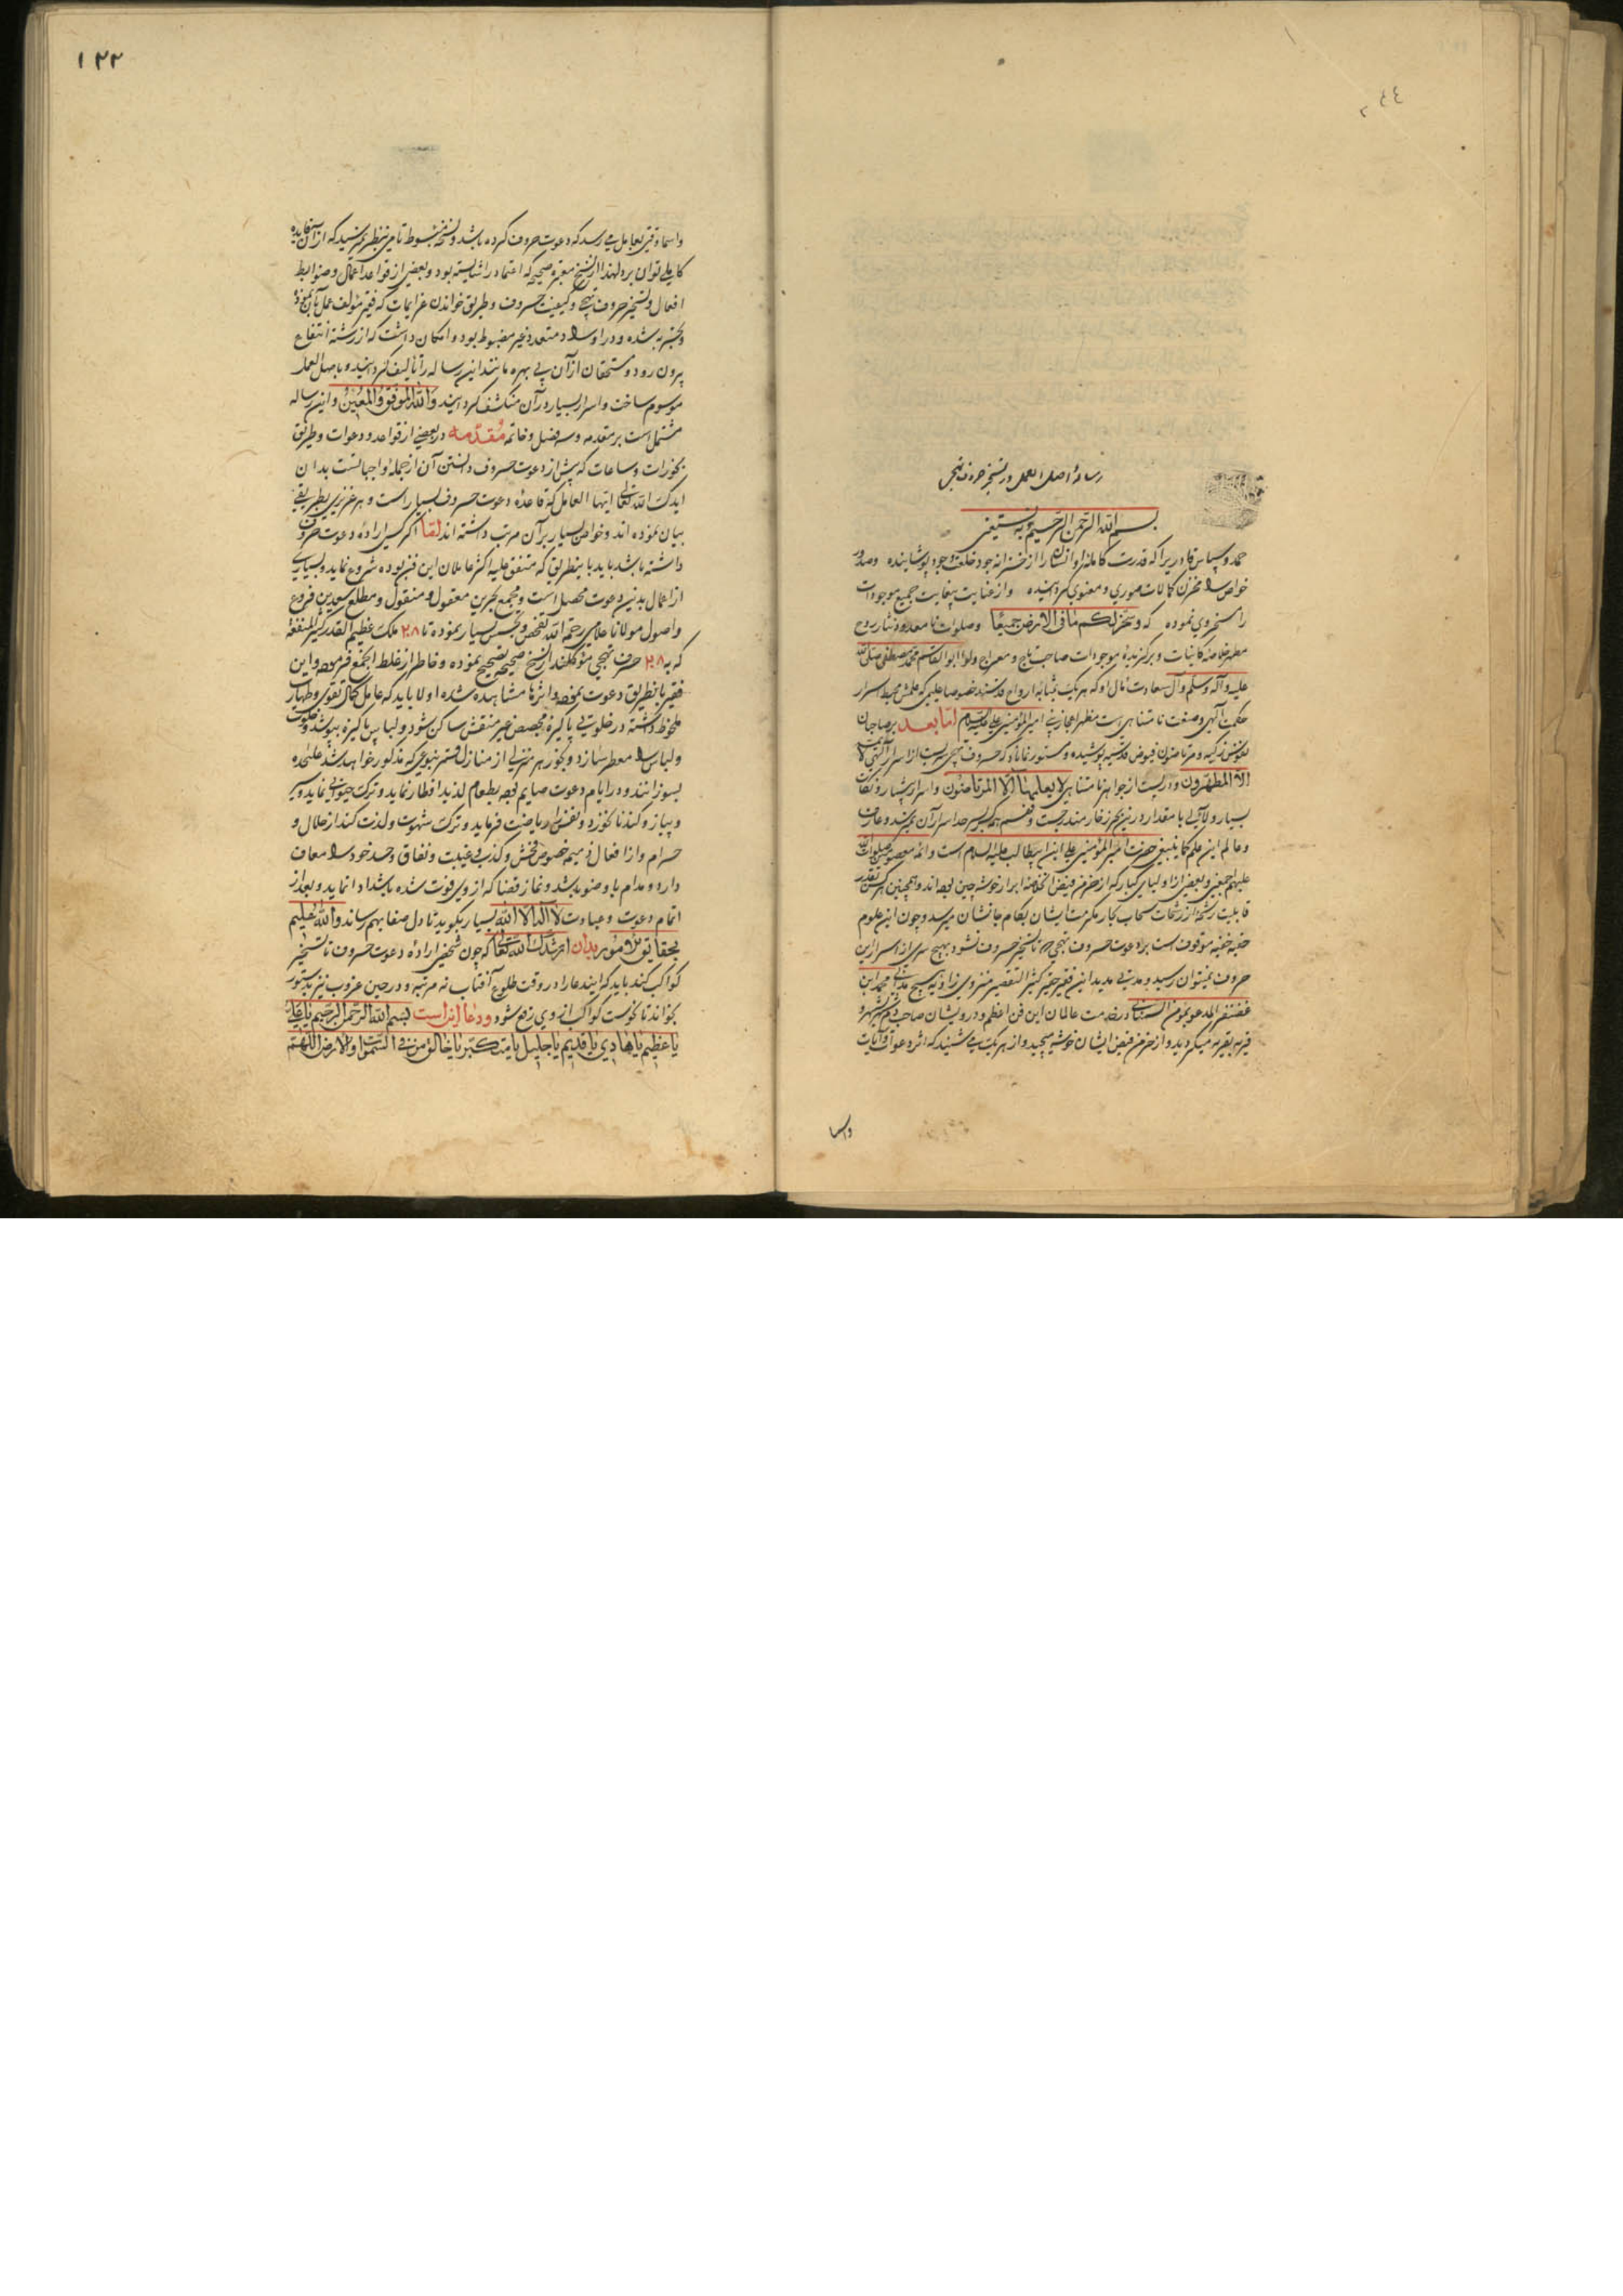 ٢٤٤
رسالهٔ اصل العمل در تسخیر حروف تهجی
بسم الله الرحمن الرحیم وبه نستعین
حمد و سپاس قادریرا که قدرت کامله او انسان را از خزانه جود خلعت وجود پوشاینده و صدور
خواص مخزن کمالات صوری و معنوی گردانیده و از عنایت بیغایت جمیع موجودات
را مسخر وی نموده که وسخر لکم ما فی الارض جمیعا وصلوات نامعدود نثار روح
مطهر خلاصه کاینات و برگزیدهٔ موجودات صاحب تاج و معراج ولوا ابوالقاسم محمد مصطفی صلی الله
علیه وآله وسلم وآل سعادت مآل او که هر یک بمثابه ارواح قدسند خصوصا علیمی که علمش محیط اسرار
حکمت الهی وصنعت نامتناهی است مظهر العجایب امیر المؤمنین علی علیه السلام اما بعد بر صاحبان
نفوس زکیه ومرتاضون فیوض قدسیه پوشیده و مستور نماناد که حروف تهجی سریست از اسرار الهی لا یمسه
الا المطهرون ودریست از جواهر نامتناهی لا یعلمها الا المرتاضون و اسرار بیشمار ونکات
بسیار ولآلی با مقدار درین بحر زخار مندرجست و فهم هر کس بسر حد اسرار آن نمیرسد وعارف
وعالم این علم کما ینبغی حضرت امیر المؤمنین علی ابن ابیطالب علیه السلام است وائمه معصومین صلوات الله
علیهم اجمعین وبعضی از اولیای کبار که از خرمن فیض ائمه ابرار خوشه چین بوده اند وهمچنین هر کس بقدر
قابلیت رشحهٔ از رشحات سحاب بحار مکرمت ایشان بکام جانشان میرسد وچون این علوم
خفیه موقوف است بر دعوت حروف تهجی و تا تسخیر حروف نشود بهیچ سری از اسرار این
حروف نمیتوان رسید و مدتی مدید این فقیر حقیر کثیر التقصیر منزوی زاویه هیچ مدانی محمد ابن
غضنفر المدعو بمؤمن السمنانی در خدمت عالمان این فن اعظم ودرویشان صاحب دم شهر بشهر و
قریه بقریه میگردید واز خرمن فیض ایشان خوشه میچید واز هر یک می شنید که اثر دعوات وآیات
واسما
١٢٢
واسما وقتی بعامل میرسد که دعوت حروف کرده باشد ونسخه مبسوط تامی بنظر نمیرسید که از آن استفاده
کاملی توان برد لهذا از نسخ معتبره صحیحه که اعتماد را شایسته بود وبعضی از قواعد اعمال وضوابط
افعال وتسخیر حروف تهجی وکیفیت حروف وطریق خواندن عزایمات که فقیر مؤلف عمل بآن نموده
وبتجربه شده ودر اوراد متعدد غیر مضبوط بود وامکان داشت که از رشته انتفاع
بیرون رود ومستحقان از آن بی بهره مانند این رساله را تالیف گردانید وباصل العمل
موسوم ساخت واسرار بسیار در آن منکشف گردانید والله الموفق والمعین واین رساله
مشتمل است بر مقدمه وسه فصل وخاتمه مقدمه در بعضی از قواعد ودعوات وطریق
بخورات وساعات که پیش از دعوت حروف دانستن آن از جمله واجباتست بدان
ایدک الله تعالی ایها العامل که قاعده دعوت حروف بسیار است وهر عزیزی بطریقی
بیان نموده اند وخواص بسیار بر آن مرتب داشته اند لقا اگر کسی ارادهٔ دعوت حروف
داشته باشد باید باینطریق که متفق علیه اکثر عاملان این فن بوده شروع نماید وبسیاری
از اعمال بدنیه دعوت محصل است ومجمع بحرین معقول ومنقول ومطلع سعدین فروع
واصول مولانا علامی رحمه الله تفحص وتجسس بسیار نموده تا ٢٨ ملک عظیم القدر کثیر المنفعة
که به ٢٨ حرف تهجی مؤکلند از نسخ صحیحه تصحیح نموده وخاطر از غلط جمع فرموده واین
فقیر باینطریق دعوت نموده واثرها مشاهده شده اولا باید که عامل کمال تقوی وطهارت
ملحوظ داشته در خلوتی پاکیزه مجصص غیر منقش ساکن شود ولباس پاکیزه بپوشد وخلوت
ولباس معطر سازد وبخور هر منزلی از منازل قمر بنوعی که مذکور خواهد شد علیحده
بسوزانند ودر ایام دعوت صایم بوده بطعام لذیذ افطار نماید وترک حیوانی نماید وسیر
وپیاز وگندنا نخورد ونفس را ریاضت فرماید وترک شهوت ولذت کند از حلال و
حرام واز افعال ذمیمه خصوص فحش وکذب وغیبت ونفاق وحسد خود معاف
دارد ومدام با وضو باشد ونماز قضا که از وی فوت شده باشد ادا نماید وبعد از
اتمام دعوت وعبادت لا اله الا الله بسیار بگوید تا دل صفا بهم رساند والله علیم
بحقایق الامور بدان ارشدک الله تعالی که چون شخصی ارادهٔ دعوت حروف تا تسخیر
کواکب کند باید که ایندعا را در وقت طلوع آفتاب نه مرتبه ودر حین غروب نیز بدستور
بخواند تا نحوست کواکب از وی رفع شود ودعا این است بسم الله الرحمن الرحیم یا علی
یا عظیم یا هادی یا قدیم یا جلیل یا متکبر یا خالق من فی السموات والارض اللهم